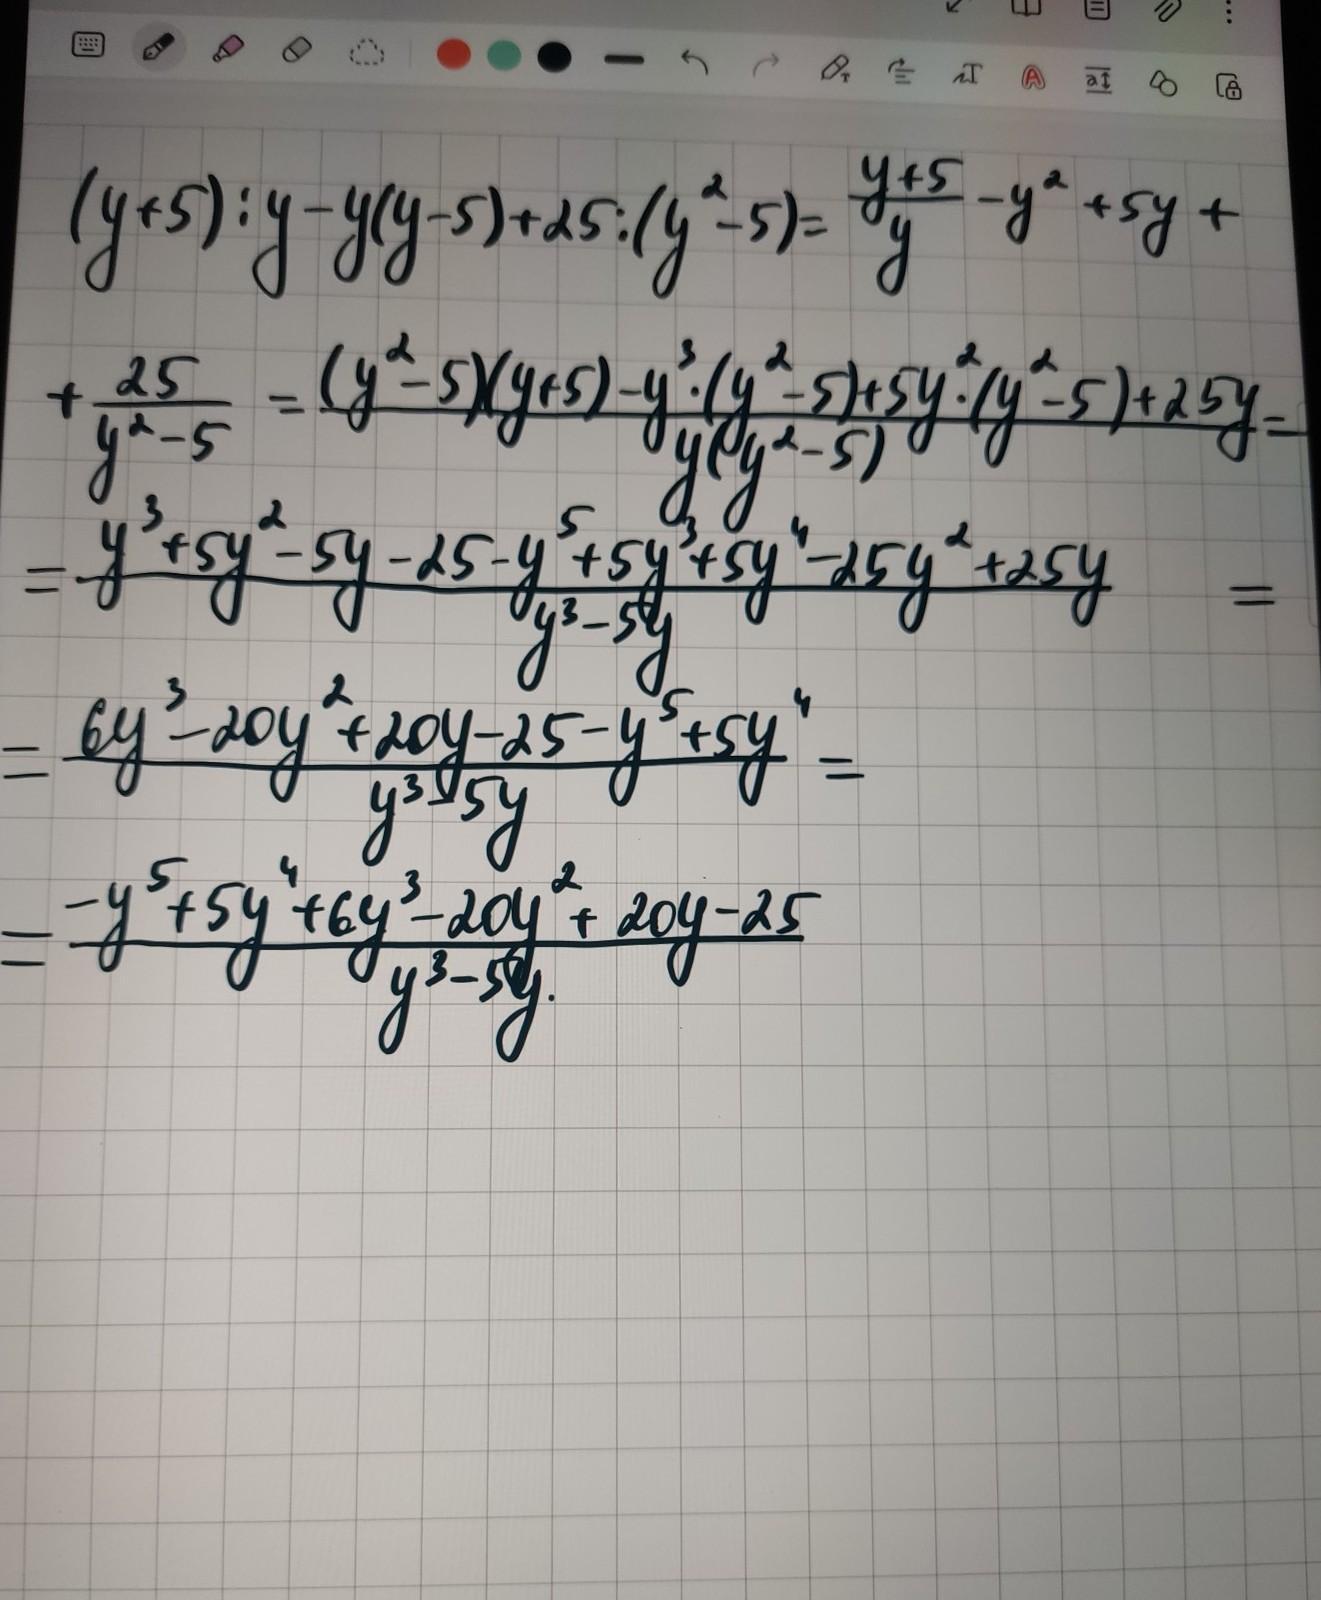 (y+5):y-y(y-5)+25:(y²-5)= \frac{y+5}{y} -y² +5y +
+ \frac{25}{y²-5} = \frac{(y²-5)(y+5)-y³·(y²-5)+5y²·(y²-5)+25y}{y(y²-5)} =
= \frac{y³+5y²-5y-25-y⁵+5y³+5y⁴-25y²+25y}{y³-5y} =
= \frac{6y³-20y²+20y-25-y⁵+5y⁴}{y³-5y} =
= \frac{-y⁵+5y⁴+6y³-20y²+20y-25}{y³-5y}.